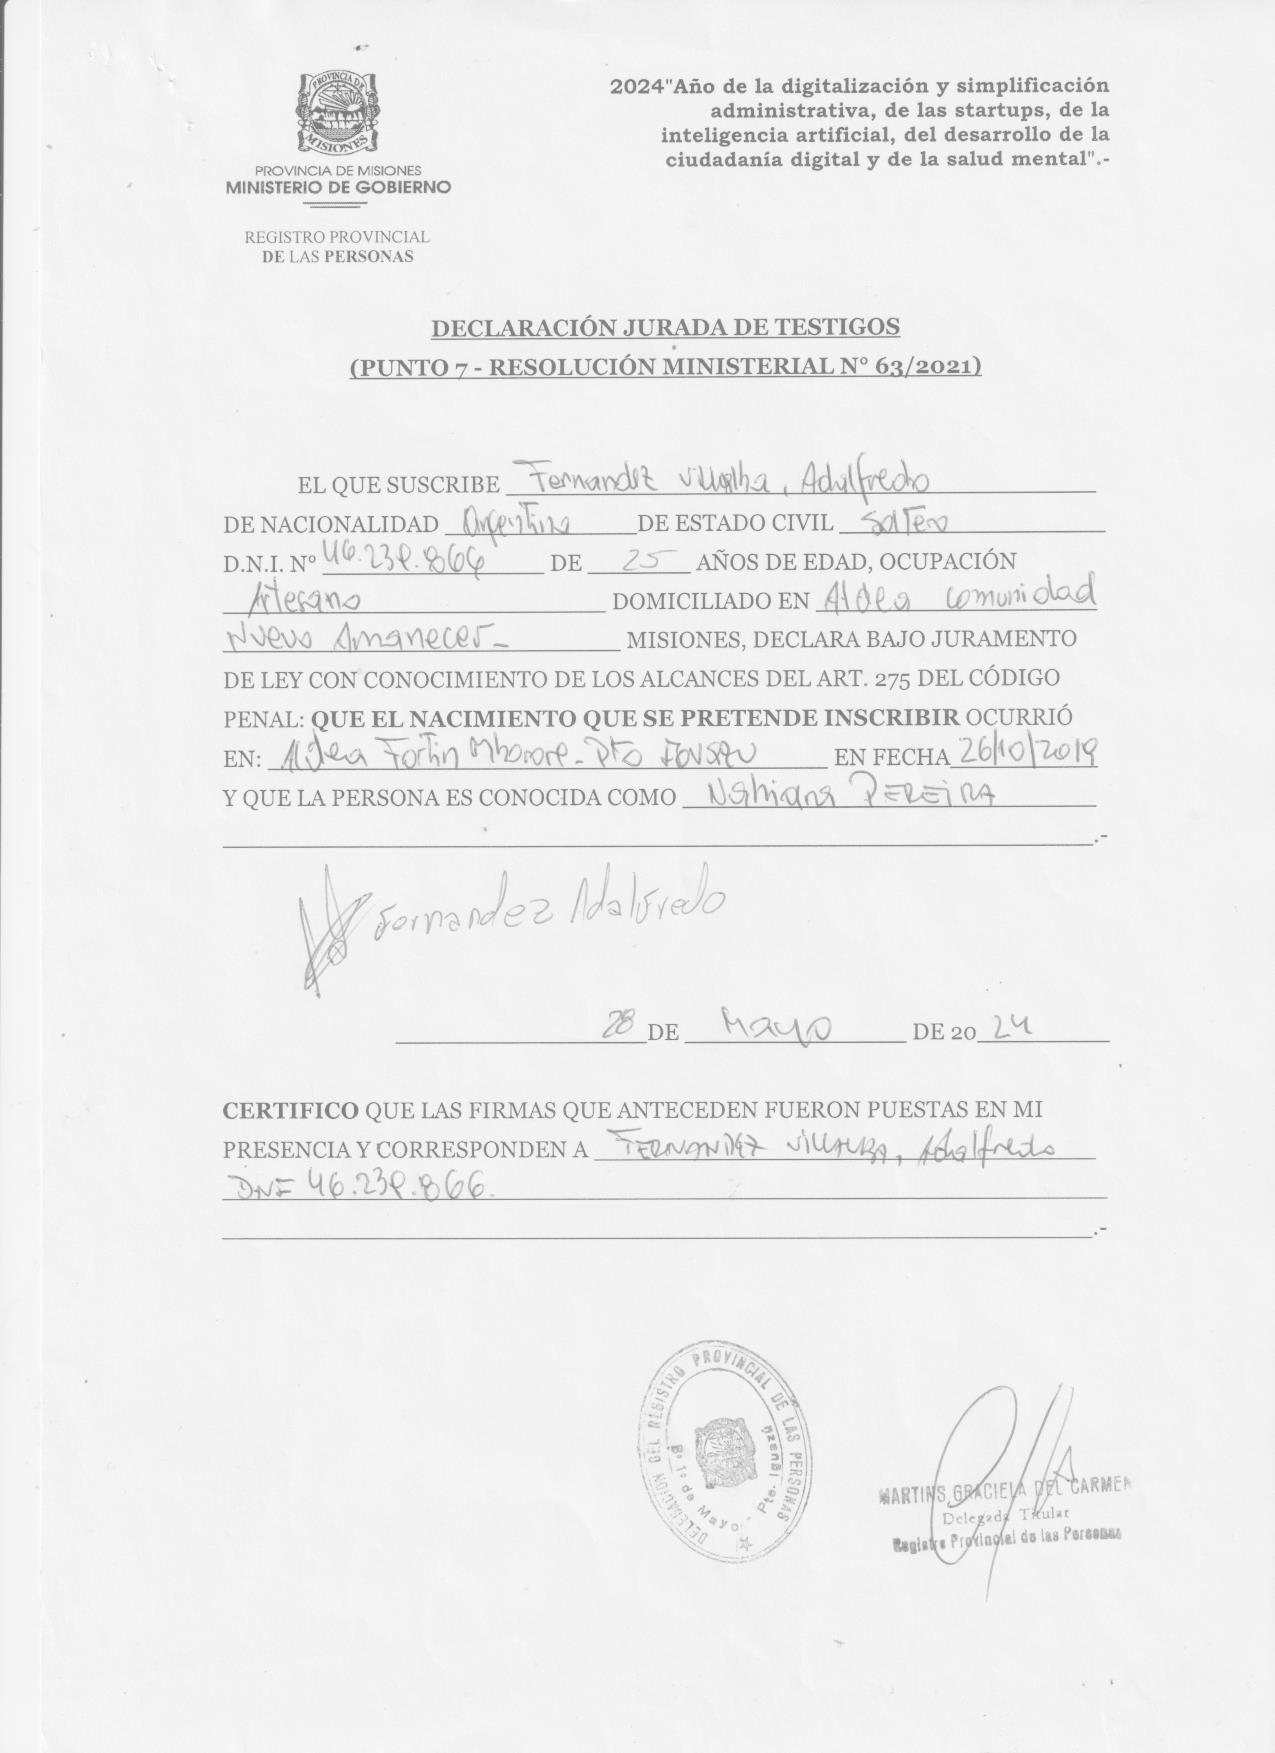 PROVINCIA DE
MISIONES
PROVINCIA DE MISIONES
MINISTERIO DE GOBIERNO
REGISTRO PROVINCIAL
DE LAS PERSONAS
2024"Año de la digitalización y simplificación
administrativa, de las startups, de la
inteligencia artificial, del desarrollo de la
ciudadanía digital y de la salud mental".-
DECLARACIÓN JURADA DE TESTIGOS
(PUNTO 7 - RESOLUCIÓN MINISTERIAL N° 63/2021)
EL QUE SUSCRIBE Fernandez Villalba, Adalfredo
DE NACIONALIDAD Argentina DE ESTADO CIVIL Soltero
D.N.I. Nº DE 25 AÑOS DE EDAD, OCUPACIÓN
Artesano DOMICILIADO EN Aldea Comunidad
Nuevo Amanecer- MISIONES, DECLARA BAJO JURAMENTO
DE LEY CON CONOCIMIENTO DE LOS ALCANCES DEL ART. 275 DEL CÓDIGO
PENAL: QUE EL NACIMIENTO QUE SE PRETENDE INSCRIBIR OCURRIÓ
EN: Aldea Fortin Mborore- Dto EN FECHA 26/10/2019
Y QUE LA PERSONA ES CONOCIDA COMO PEREIRA
.-
Fernandez Adalfredo
28 DE Mayo DE 2024
CERTIFICO QUE LAS FIRMAS QUE ANTECEDEN FUERON PUESTAS EN MI
PRESENCIA Y CORRESPONDEN A FERNANDEZ VILLALBA, Adalfredo
DNI
.-
DELEGACION DEL REGISTRO PROVINCIAL DE LAS PERSONAS
Bº 1º de Mayo - Pto. Iguazú
MARTINS, GRACIELA DEL CARMEN
Delegada Titular
Registro Provincial de las Personas